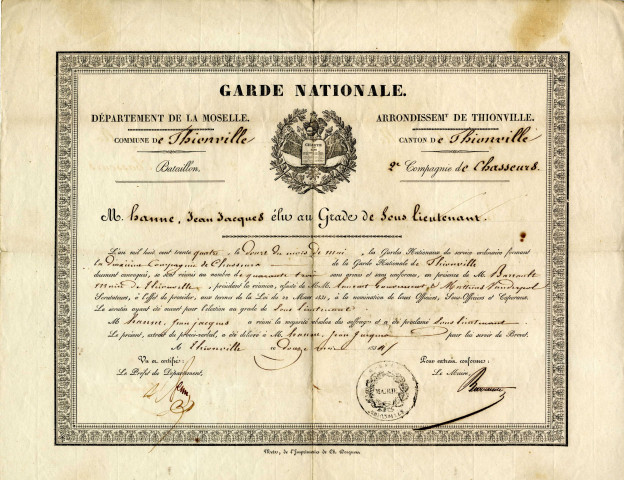 GARDE NATIONALE.
DÉPARTEMENT DE LA MOSELLE.
ARRONDISSEMᵗ DE THIONVILLE.
COMMUNE de Thionville
CANTON de Thionville
Bataillon.
2ᵉ Compagnie de Chasseurs.
M. hanne, Jean Jacques élu au Grade de Sous lieutenant.
L'an mil huit cent trente quatre le douze du mois de mai, les Gardes Nationaux du service ordinaire formant
la Deuxième Compagnie de Chasseurs de la Garde Nationale de Thionville
dûment convoqués, se sont réunis au nombre de quarante trois sans armes et sans uniforme, en présence de M.
Maire de Thionville, président la réunion, assisté de MM. Laurent et Mathias
Scrutateurs, à l'effet de procéder, aux termes de la Loi du 22 Mars 1831, à la nomination de leurs Officiers, Sous-Officiers et Caporaux.
Le scrutin ayant été ouvert pour l'élection au grade de Sous lieutenant
M. hanne, jean jacques a réuni la majorité absolue des suffrages et a été proclamé Sous lieutenant
Le présent, extrait du procès-verbal, a été délivré à M. hanne, jean jacques pour lui servir de Brevet.
A Thionville ce douze
Vu et certifié:
Pour extrait conforme:
Le Préfet du Département,
Le Maire,
MAIRIE
Metz, de l'Imprimerie de Ch. Dosquet.